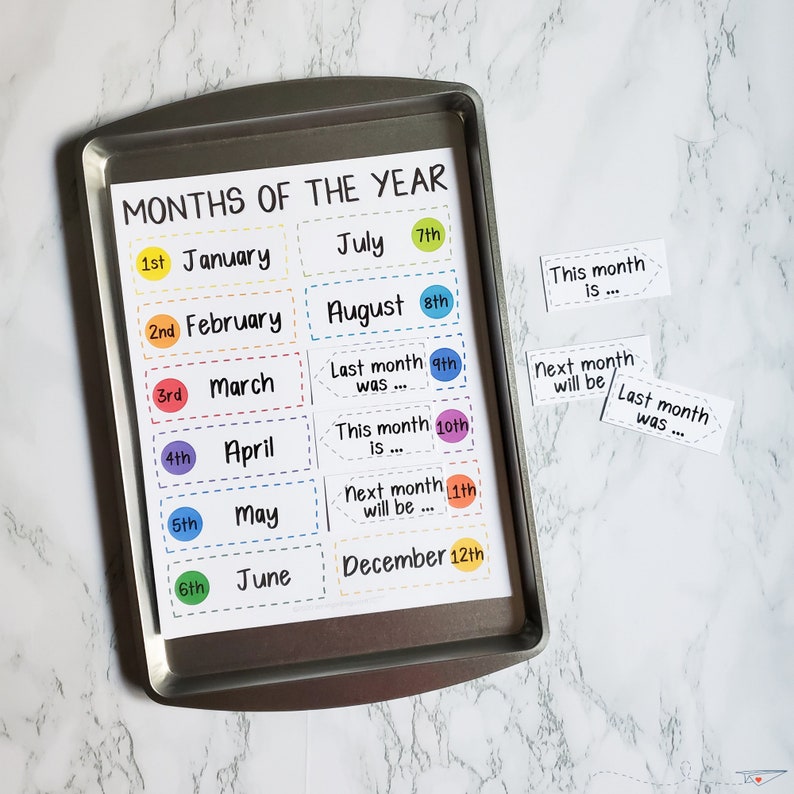 MONTHS OF THE YEAR
1st January
2nd February
3rd March
4th April
5th May
6th June
July 7th
August 8th
Last month
was ...
9th
This month
is ...
10th
Next month
will be ...
11th
December 12th
This month
is ...
Next month
will be
Last month
was ...